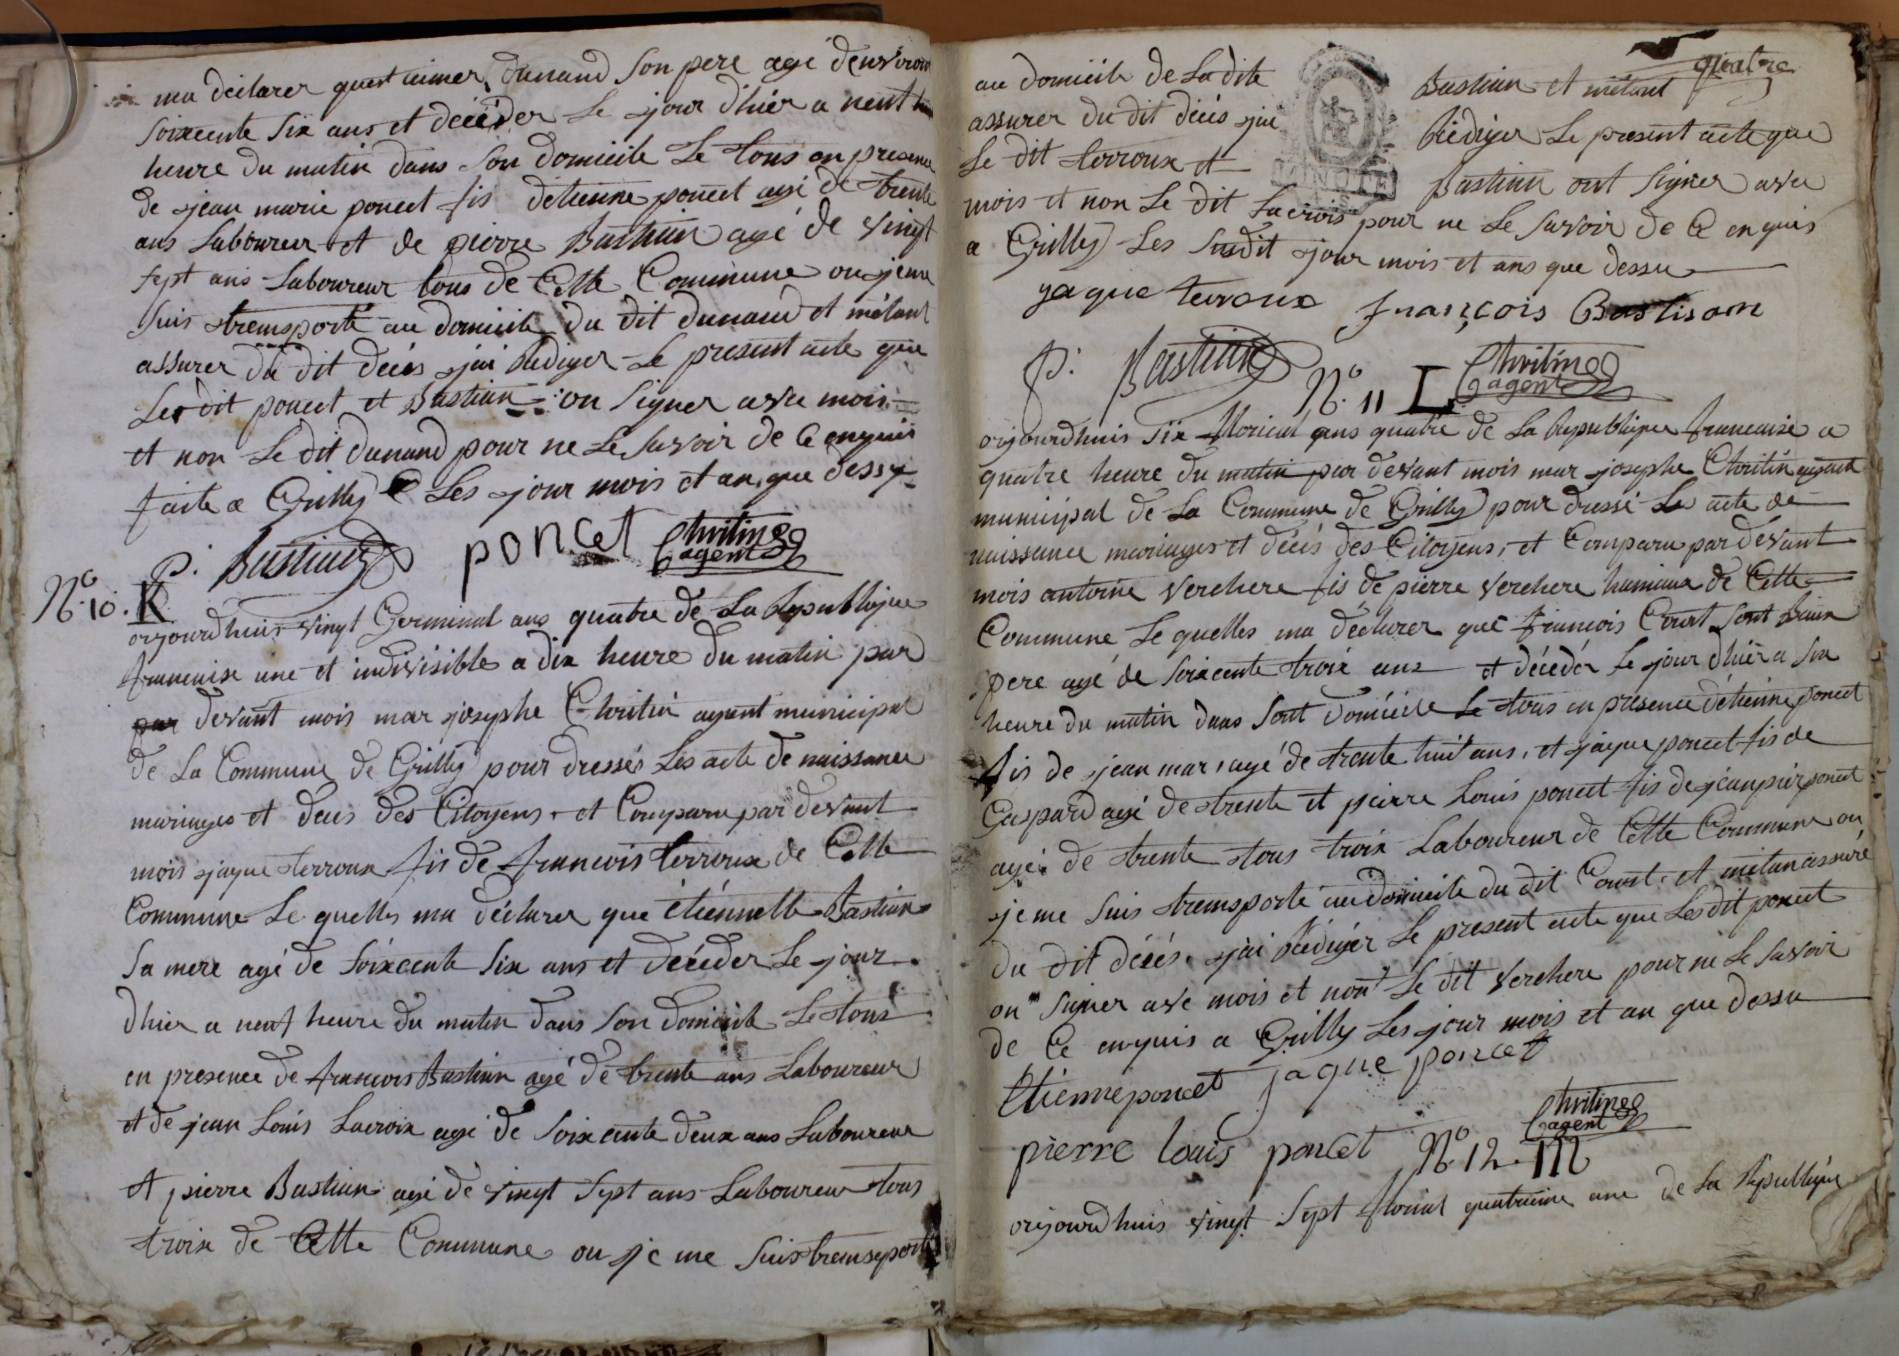 ma déclarer quest aimer dunand son pere agé denviron
soixcente six ans et décéder le jour d'hier a neuf
heure du matin dans son domicile Le tous en presence
de jean marie poncet fis détienne poncet agé de trente
ans Laboureur et de pierre Bastian agé de vingt
sept ans Laboureur tous de Cette Commune ou je me
suis tremsporté au domicile du dit dunand et métant
assurer du dit décés jai Rédiger Le present acte que
Les dit poncet et Bastian on signer avec mois
et non Le dit dunand pour ne Le savoir de Ce enquis
faite a Grilly Les jour mois et an que dessu
p. Bastian poncet Chritin
agent
N.° 10. K
oujourdhuis vingt Germinal ans quatre de La Republique
francaise une et indivisible a dix heure du matin par
par devant mois mar josephe Chritin agent municipal
de La Commune de Grilly pour dressés Les acte de naissance
mariages et deces des Citoyens et Comparu par devant
mois jaque terroux fis de francois terroux de Cette
Commune Le quelles ma déclarer que étiennette Bastian
sa mere agé de soixcente six ans et décéder Le jour
dhier a neuf heure du matin dans son domicile Le tous
en presence de francois Bastian agé de trente ans Laboureur
et de jean Louis Lacroix agé de soixcente deux ans Laboureur
et pierre Bastian agé de vingt sept ans Laboureur tous
troix de Cette Commune ou je me suis tremsporté
quatre
au domicile de La dite Bastian et métant
assurer du dit décés jai Rédiger Le present acte que
Le dit terroux et Bastian ont signer avec
mois et non Le dit Lacrois pour ne Le savoir de Ce enquis
a Grilly Les susdit jour mois et ans que dessu
yaque terroux françois Bastiaon
p. Bastian Chritin
agent
N.° 11 L
oujourdhuis six florial ans quatre de La Republique francaise a
quatre heure du matin par devant mois mar josephe Chritin agent
municipal de La Commune de Grilly pour dressé Le acte de
naissance mariages et décés des Citoyens, et Comparu par devant
mois antoine verchere fis de pierre verchere de Cette
Commune Le quelles ma déclarer que francois Court sont Baux
pere agé de soixcente troix ans et décéder Le jour dhier a six
heure du matin dans sont domicile Le tous en presence détienne poncet
fis de jean mar, agé de trente huit ans, et jaque poncet fis de
Gaspard agé de trente et pierre Louis poncet fis de jeanpier poncet
agé de trente tous troix Laboureur de Cette Commune ou
je me suis tremsporté au domicile du dit Court et métan assuré
du dit décés, jai Rédiger Le present acte que Les dit poncet
on signer ave mois et non Le dit verchere pour ne Le savoir
de Ce enquis a Grilly Les jour mois et an que dessu
Etienne poncet jaque poncet
Chritin
agent
pierre louis poncet N.° 12. M
oujourdhuis vingt sept florial quatrieme ane de La Republique